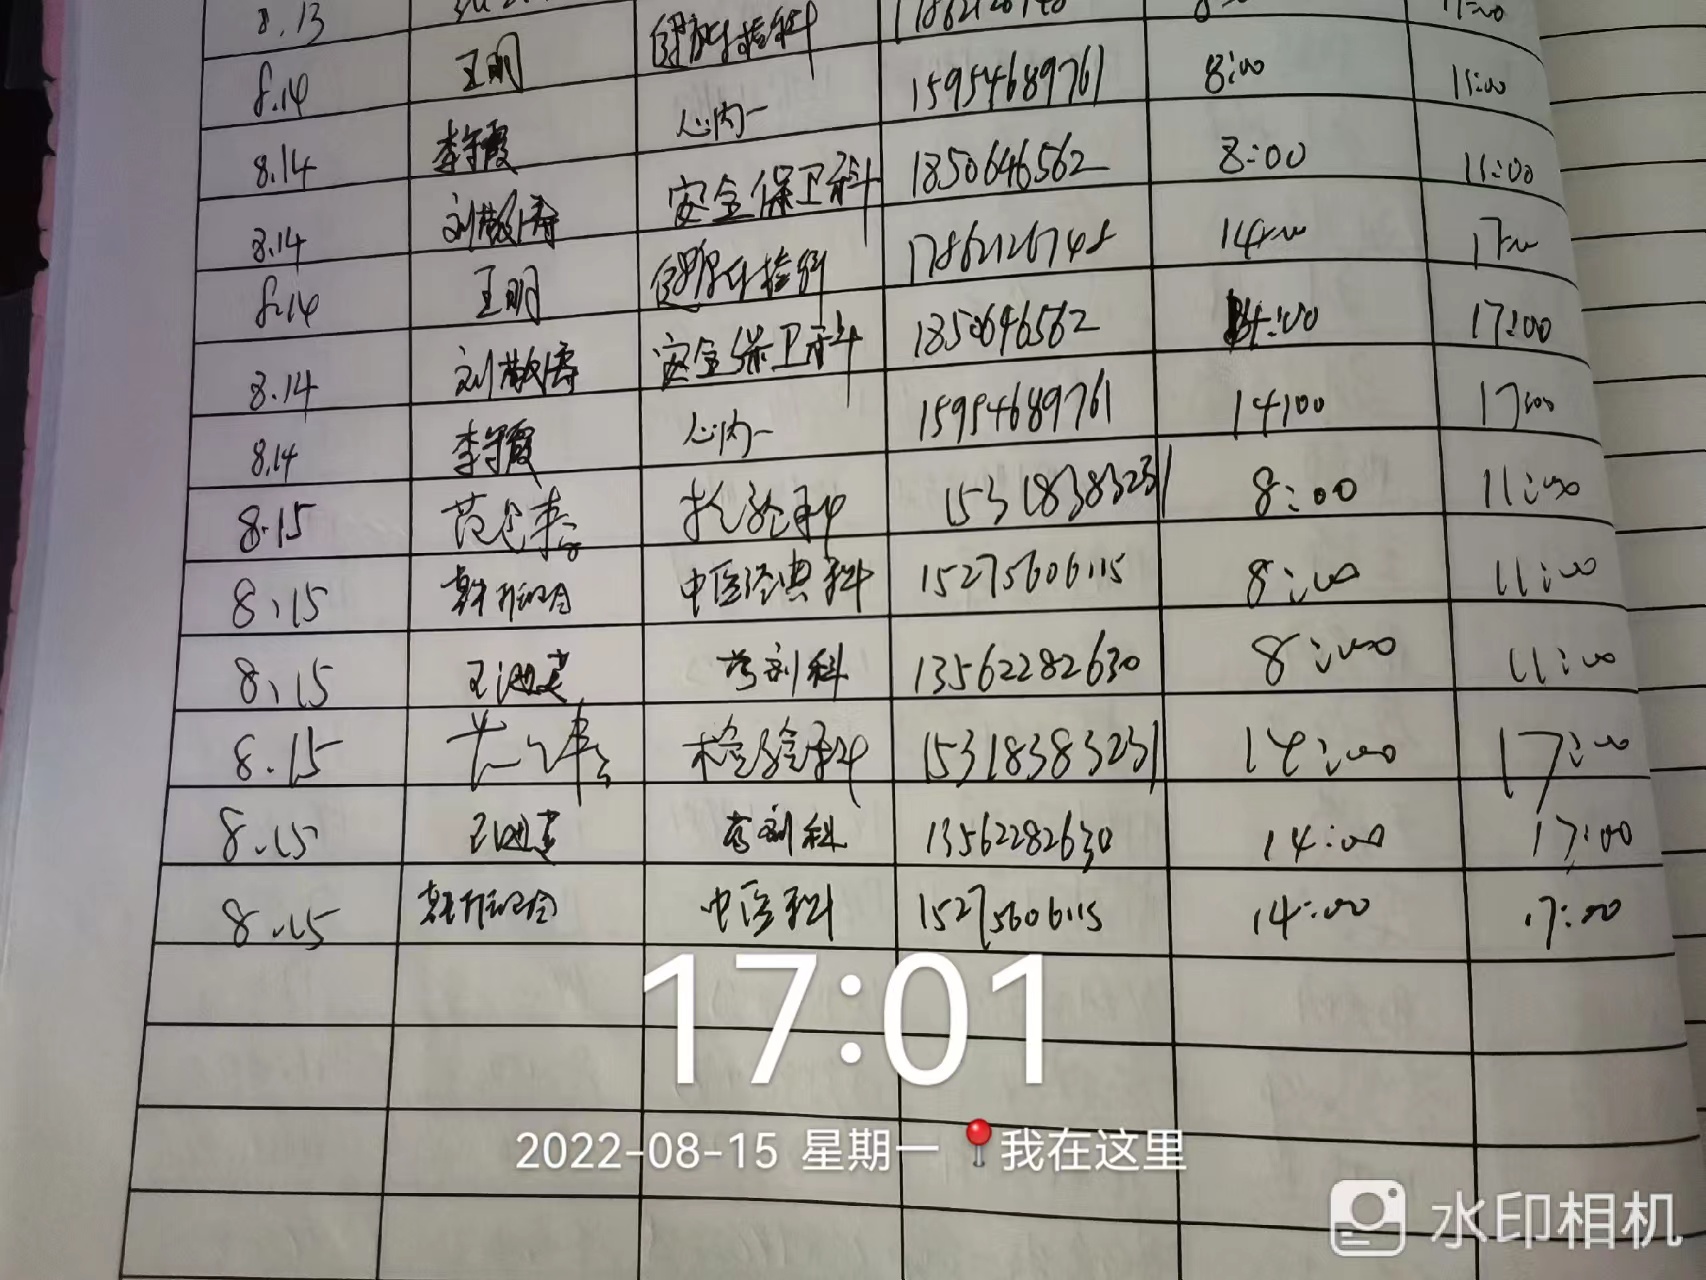 8.13 11:00
8.14 王明 15954689761 8:00 11:00
8.14 李守霞 心内一 1850646562 8:00 11:00
8.14 刘敬涛 安全保卫科 17862126748 14:00 17:00
8.14 王明 1850646562 14:00 17:00
8.14 刘敬涛 安全保卫科 15954689761 14:00 17:00
8.14 李守霞 心内一
8.15 检验科 15318383231 8:00 11:00
8.15 中医经典科 15275606115 8:00 11:00
8.15 药剂科 13562282630 8:00 11:00
8.15 检验科 15318383231 14:00 17:00
8.15 药剂科 13562282630 14:00 17:00
8.15 中医科 15275606115 14:00 17:00
17:01
2022-08-15 星期一 我在这里
水印相机